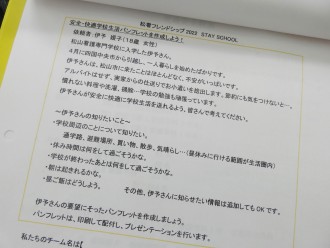 松看フレンドシップ 2022 STAY SCHOOL
安全・快適学校生活パンフレットを作成しよう！
依頼者：伊予 媛子（18歳 女性）
松山看護専門学校に入学した伊予さん。
4月に四国中央市から引越し、一人暮らしを始めたばかりです。
伊予さんは、松山市に来たことはほとんどなく、不安がいっぱいです。
アルバイトはせず、実家からの仕送りでお小遣いを捻出します。節約にも気をつけないと…。
慣れない料理や洗濯、掃除…学校の勉強も頑張っています。
伊予さんが安全に快適に学校生活を送れるよう、皆さんで考えてください。
～伊予さんの知りたいこと～
・学校周辺のことについて知りたい。
通学路、避難場所、買い物、散歩、気晴らし…（昼休みに行ける範囲が生活圏内）
・休み時間は何をして過ごそうかな。
・学校が終わったあとは何をして過ごそうかな。
・朝は起きれるかな。
・昼ご飯はどうしよう。
その他、伊予さんに知らせたい情報は追加してもOKです。
伊予さんの要望にそったパンフレットを作成しましょう。
パンフレットは、印刷して配付し、プレゼンテーションを行います。
私たちのチーム名は【